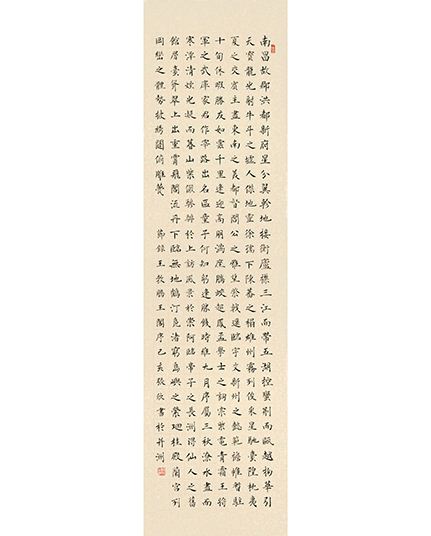 南昌故郡洪都新府星分翼軫地接衡廬襟三江而帶五湖控蠻荆而甌越物華引
天寶龍光射牛斗之墟人傑地靈徐孺下陳蕃之榻雄州霧列俊采星馳臺隍枕夷
夏之交賓主盡東南之美都督閻公之雅望棨戟遥臨宇文新州之懿範襜帷暫駐
十旬休暇勝友如雲千里逢迎高朋滿座騰蛟起鳳孟學士之詞宗紫電青霜王將
軍之武庫家君作宰路出名區童子何知躬逢勝餞時維九月序屬三秋潦水盡而
寒潭清烟光凝而暮山紫儼驂騑於上訪風景於崇阿臨帝子之長洲得仙人之舊
館層臺聳翠上出重霄飛閣流丹下臨無地鶴汀凫渚窮島嶼之縈迴桂殿蘭宫列
岡巒之體勢披綉闥俯雕甍
節録王勃滕王閣序己亥張欣書於并洲